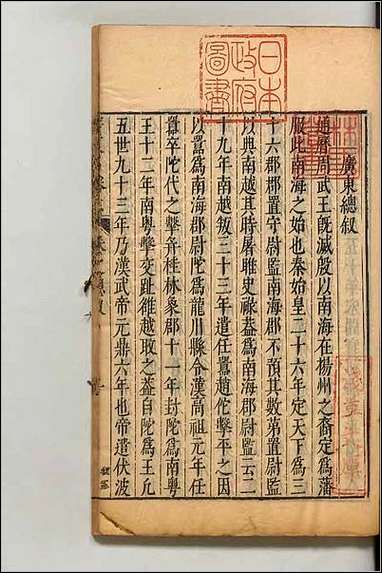 廣東總叙
通曆周武王旣滅殷以南海在楊州之裔定爲藩
服此南海之始也秦始皇二十六年定天下爲三
十六郡郡置守尉監南海郡不預其數第置尉監
以典南越其時屠雎史祿葢爲南海郡尉監云二
十九年南越叛三十三年遣任嚣趙佗擊平之因
以嚣爲南海郡尉陀爲龍川縣令漢高祖元年任
嚣卒陀代之擊弁桂林象郡十一年封陀爲南粤
王十二年南粤擊交趾雒越取之葢自陀爲王凢
五世九十三年乃漢武帝元鼎六年也帝遣伏波
日本
政府
圖書